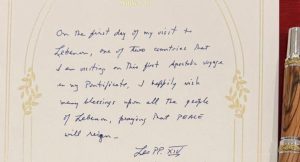 On the first day of my visit to
Lebanon, one of two countries that
I am visiting on this first Apostolic voyage
in my Pontificate, I happily wish
many blessings upon all the people
of Lebanon, praying that PEACE
will reign.
Leo PP. XIV